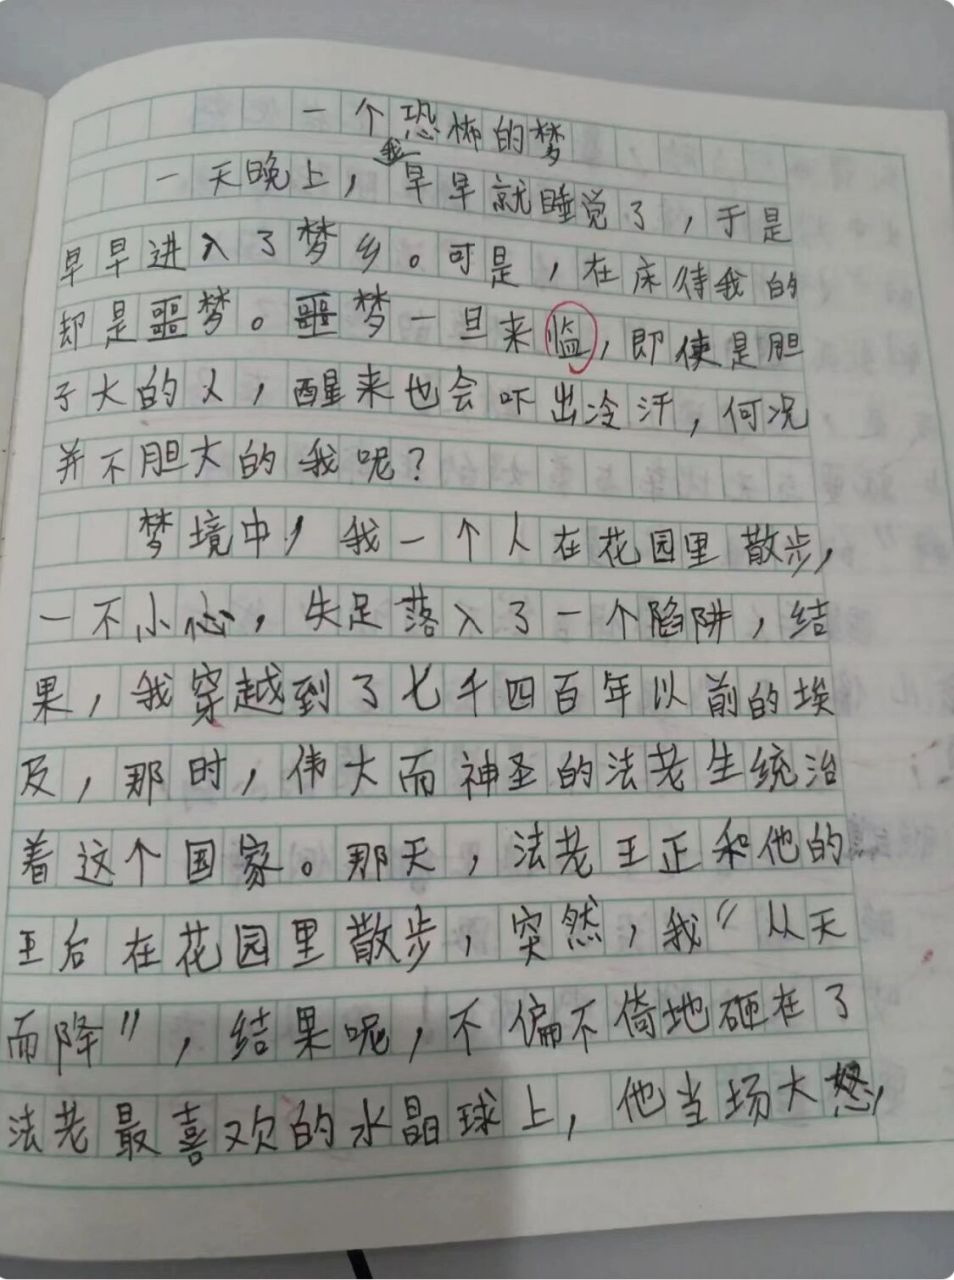 一个恐怖的梦
一天晚上，我早早就睡觉了，于是
早早进入了梦乡。可是，在床待我的
却是噩梦。噩梦一旦来监，即使是胆
子大的人，醒来也会吓出冷汗，何况
并不胆大的我呢？
梦境中，我一个人在花园里散步，
一不小心，失足落入了一个陷阱，结
果，我穿越到了七千四百年以前的埃
及，那时，伟大而神圣的法老生统治
着这个国家。那天，法老王正和他的
王后在花园里散步，突然，我“从天
而降”，结果呢，不偏不倚地砸在了
法老最喜欢的水晶球上，他当场大怒，